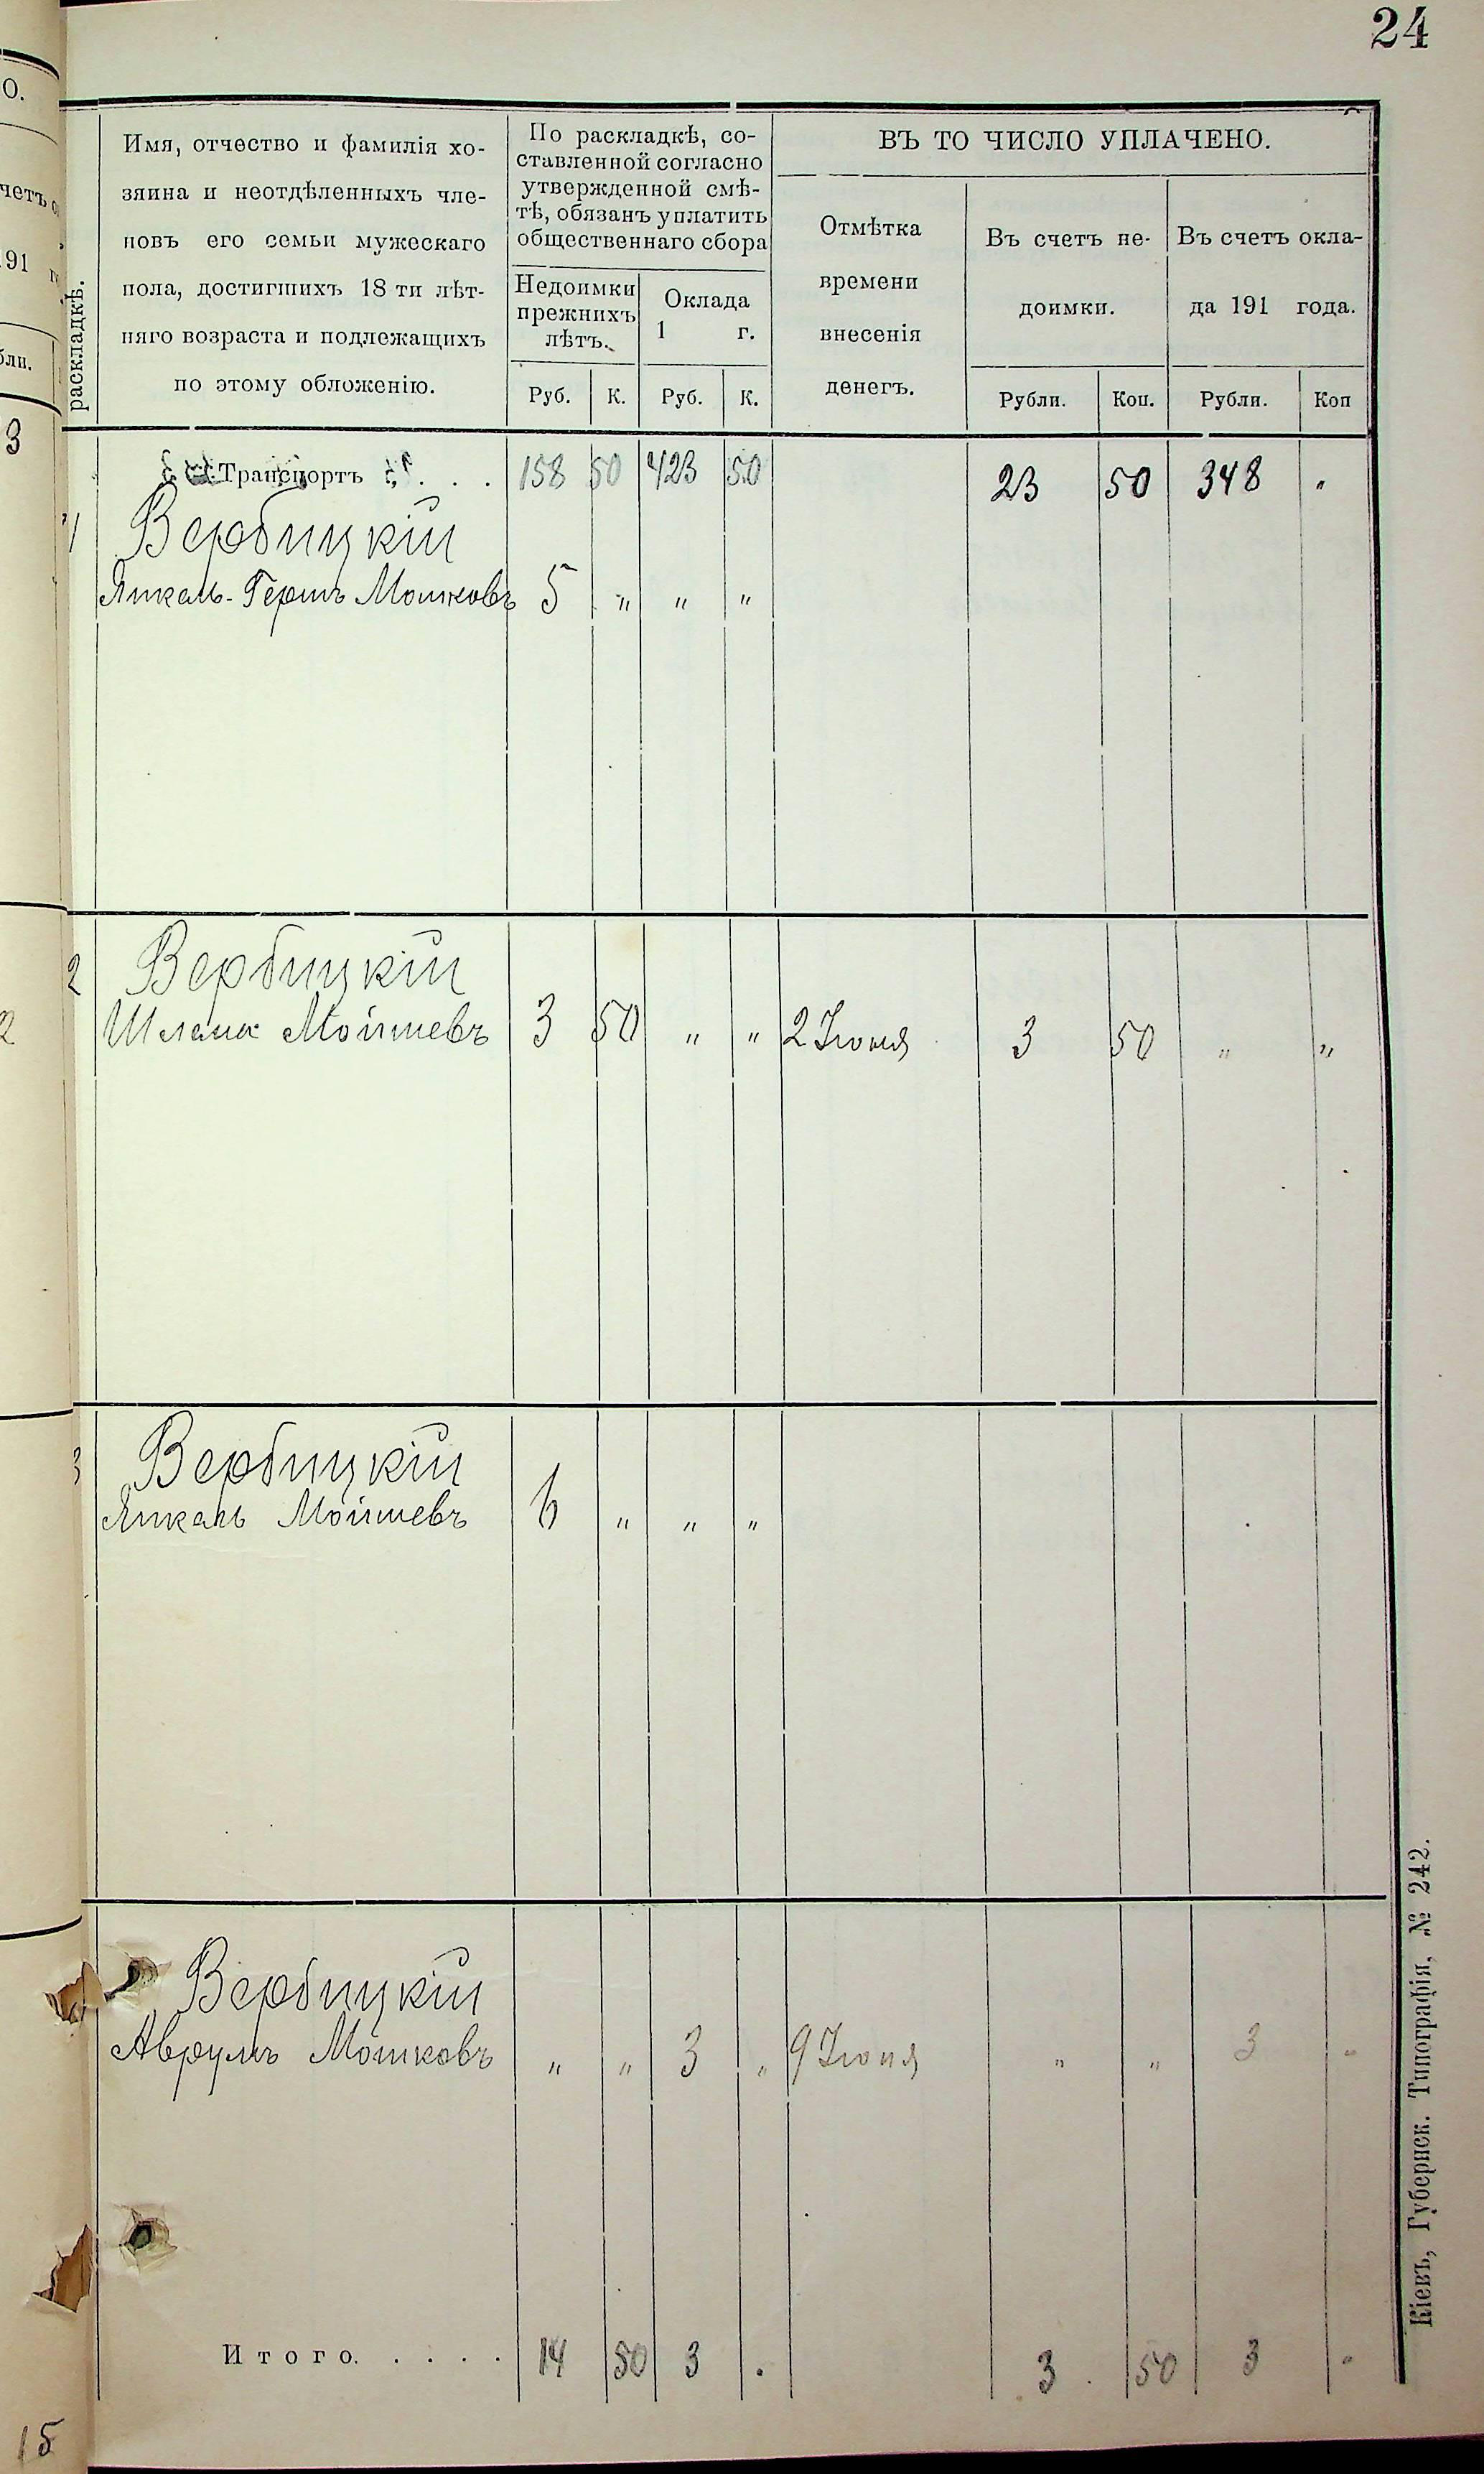 24
О.
четъ
191
бли.
3
2
15
раскладкѣ.
Имя, отчество и фамилія хо-
зяина и неотдѣленныхъ чле-
новъ его семьи мужескаго
пола, достигшихъ 18 ти лѣт-
няго возраста и подлежащихъ
по этому обложенію.
По раскладкѣ, со-
ставленной согласно
утвержденной смѣ-
тѣ, обязанъ уплатить
общественнаго сбора
Недоимки
прежнихъ
лѣтъ.
Руб. К.
Оклада
1 г.
Руб. К.
ВЪ ТО ЧИСЛО УПЛАЧЕНО.
Отмѣтка
времени
внесенія
денегъ.
Въ счетъ не-
доимки.
Рубли. Коп.
Въ счетъ окла-
да 191 года.
Рубли. Коп
Транспортъ . . . 158 50 423 50 23 50 348 "
1 Вербицкій
Янкель-Гершъ Мошковъ 5 " " "
2 Вербицкій
Шлема Мойшевъ 3 50 " " 2 Іюня 3 50 " "
3 Вербицкій
Янкель Мойшевъ 6 " " "
Вербицкій
Аврумъ Мошковъ " " 3 " 9 Іюня " " 3 "
Итого. . . . . 14 50 3 . 3 50 3 "
Кіевъ, Губернск. Типографія, № 242.